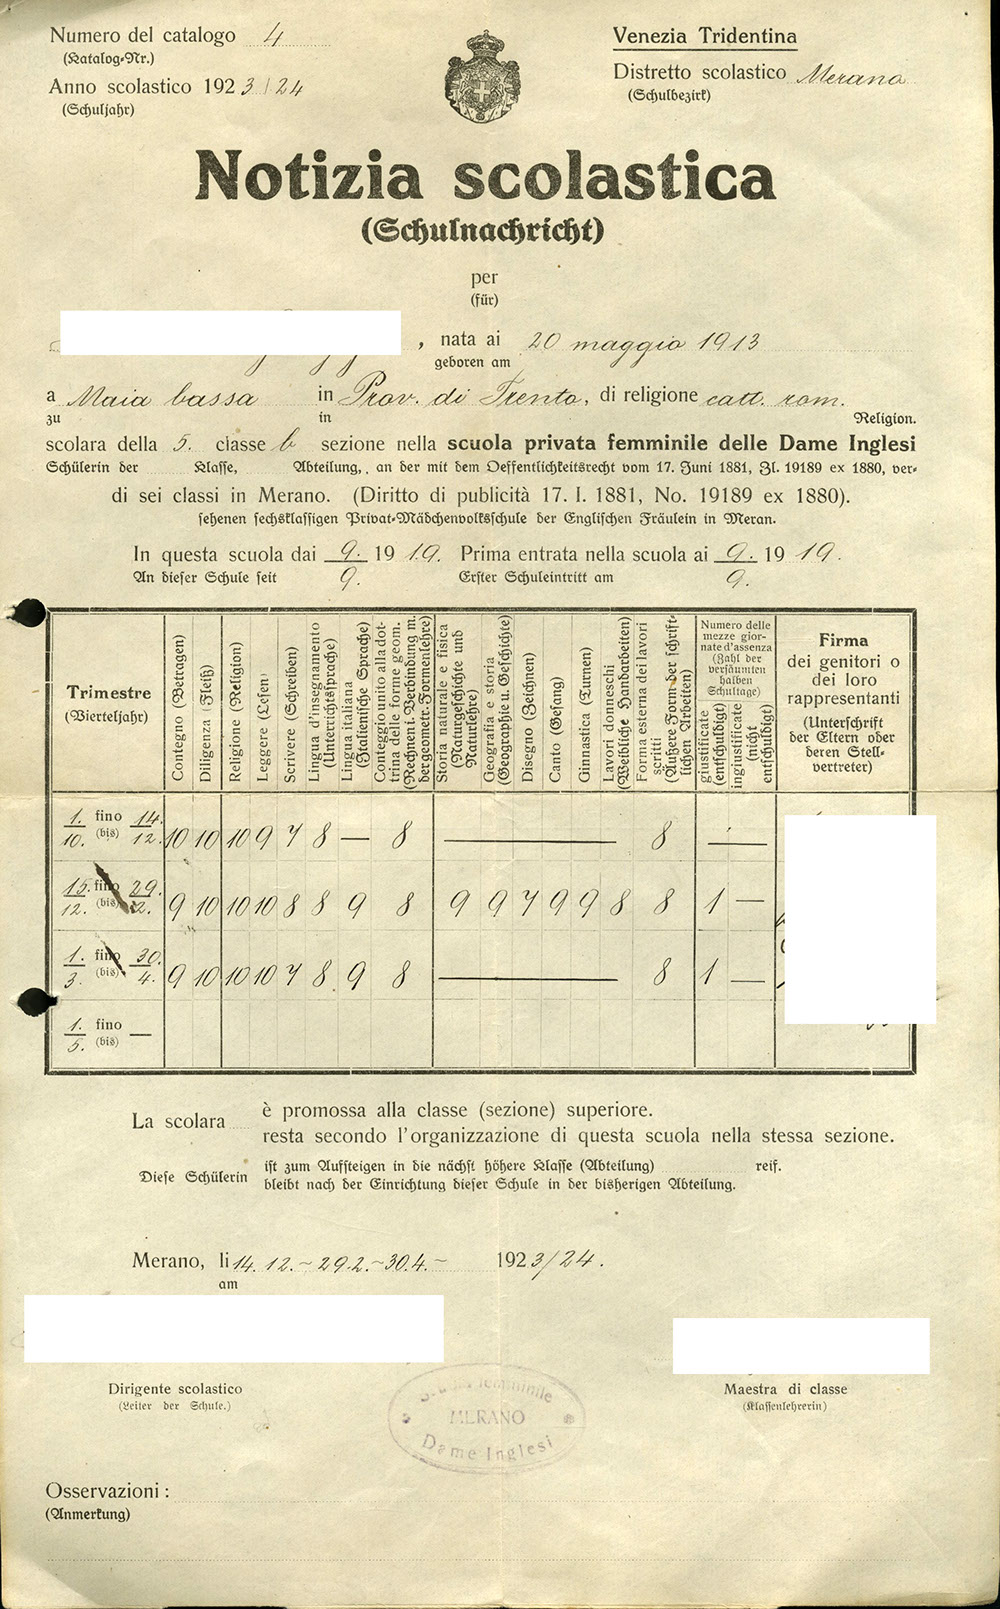 Numero del catalogo 4
(Katalog-Nr.)
Anno scolastico 1923/24
(Schuljahr)
Venezia Tridentina
Distretto scolastico Merano
(Schulbezirk)
Notizia scolastica
(Schulnachricht)
per
(für)
, nata ai 20 maggio 1913
geboren am
a Maia bassa in Prov. di Trento, di religione catt. rom.
zu in Religion.
scolara della 5. classe b sezione nella scuola privata femminile delle Dame Inglesi
Schülerin der Klasse, Abteilung, an der mit dem Oeffentlichkeitsrecht vom 17. Juni 1881, Zl. 19189 ex 1880, ver-
di sei classi in Merano. (Diritto di publicità 17. I. 1881, No. 19189 ex 1880).
sehenen sechsklassigen Privat-Mädchenvolksschule der Englischen Fräulein in Meran.
In questa scuola dai 9. 1919. Prima entrata nella scuola ai 9. 1919.
An dieser Schule seit 9. Erster Schuleintritt am 9.
Trimestre
(Vierteljahr)
Contegno (Betragen)
Diligenza (Fleiß)
Religione (Religion)
Leggere (Lesen)
Scrivere (Schreiben)
Lingua d'insegnamento
(Unterrichtssprache)
Lingua italiana
(Italienische Sprache)
Conteggio unito alla dot-
trina delle forme geom.
(Rechnen i. Verbindung m.
der geometr. Formenlehre)
Storia naturale e fisica
(Naturgeschichte und
Naturlehre)
Geografia e storia
(Geographie u. Geschichte)
Disegno (Zeichnen)
Canto (Gesang)
Gimnastica (Turnen)
Lavori donneschi
(Weibliche Handarbeiten)
Forma esterna dei lavori
scritti
(Äußere Form der schrift-
lichen Arbeiten)
Numero delle
mezze gior-
nate d'assenza
(Zahl der
versäumten
halben
Schultage)
giustificate
(entschuldigt)
ingiustificate
(nicht
entschuldigt)
Firma
dei genitori o
dei loro
rappresentanti
(Unterschrift
der Eltern oder
deren Stell-
vertreter)
1./10. fino (bis) 14./12. 10 10 10 9 7 8 — 8 — 8 —
15./12. fino (bis) 29./2. 9 10 10 10 8 8 9 8 9 9 7 9 9 8 8 1 —
1./3. fino (bis) 30./4. 9 10 10 10 7 8 9 8 — 8 1 —
1./5. fino (bis) —
La scolara è promossa alla classe (sezione) superiore.
resta secondo l'organizzazione di questa scuola nella stessa sezione.
Diese Schülerin ist zum Aufsteigen in die nächst höhere Klasse (Abteilung) reif.
bleibt nach der Einrichtung dieser Schule in der bisherigen Abteilung.
Merano, li 14. 12. – 29.2. – 30.4. – 1923/24.
am
Dirigente scolastico
(Leiter der Schule.)
Maestra di classe
(Klassenlehrerin)
femminile
MERANO
Dame Inglesi
Osservazioni :
(Anmerkung)